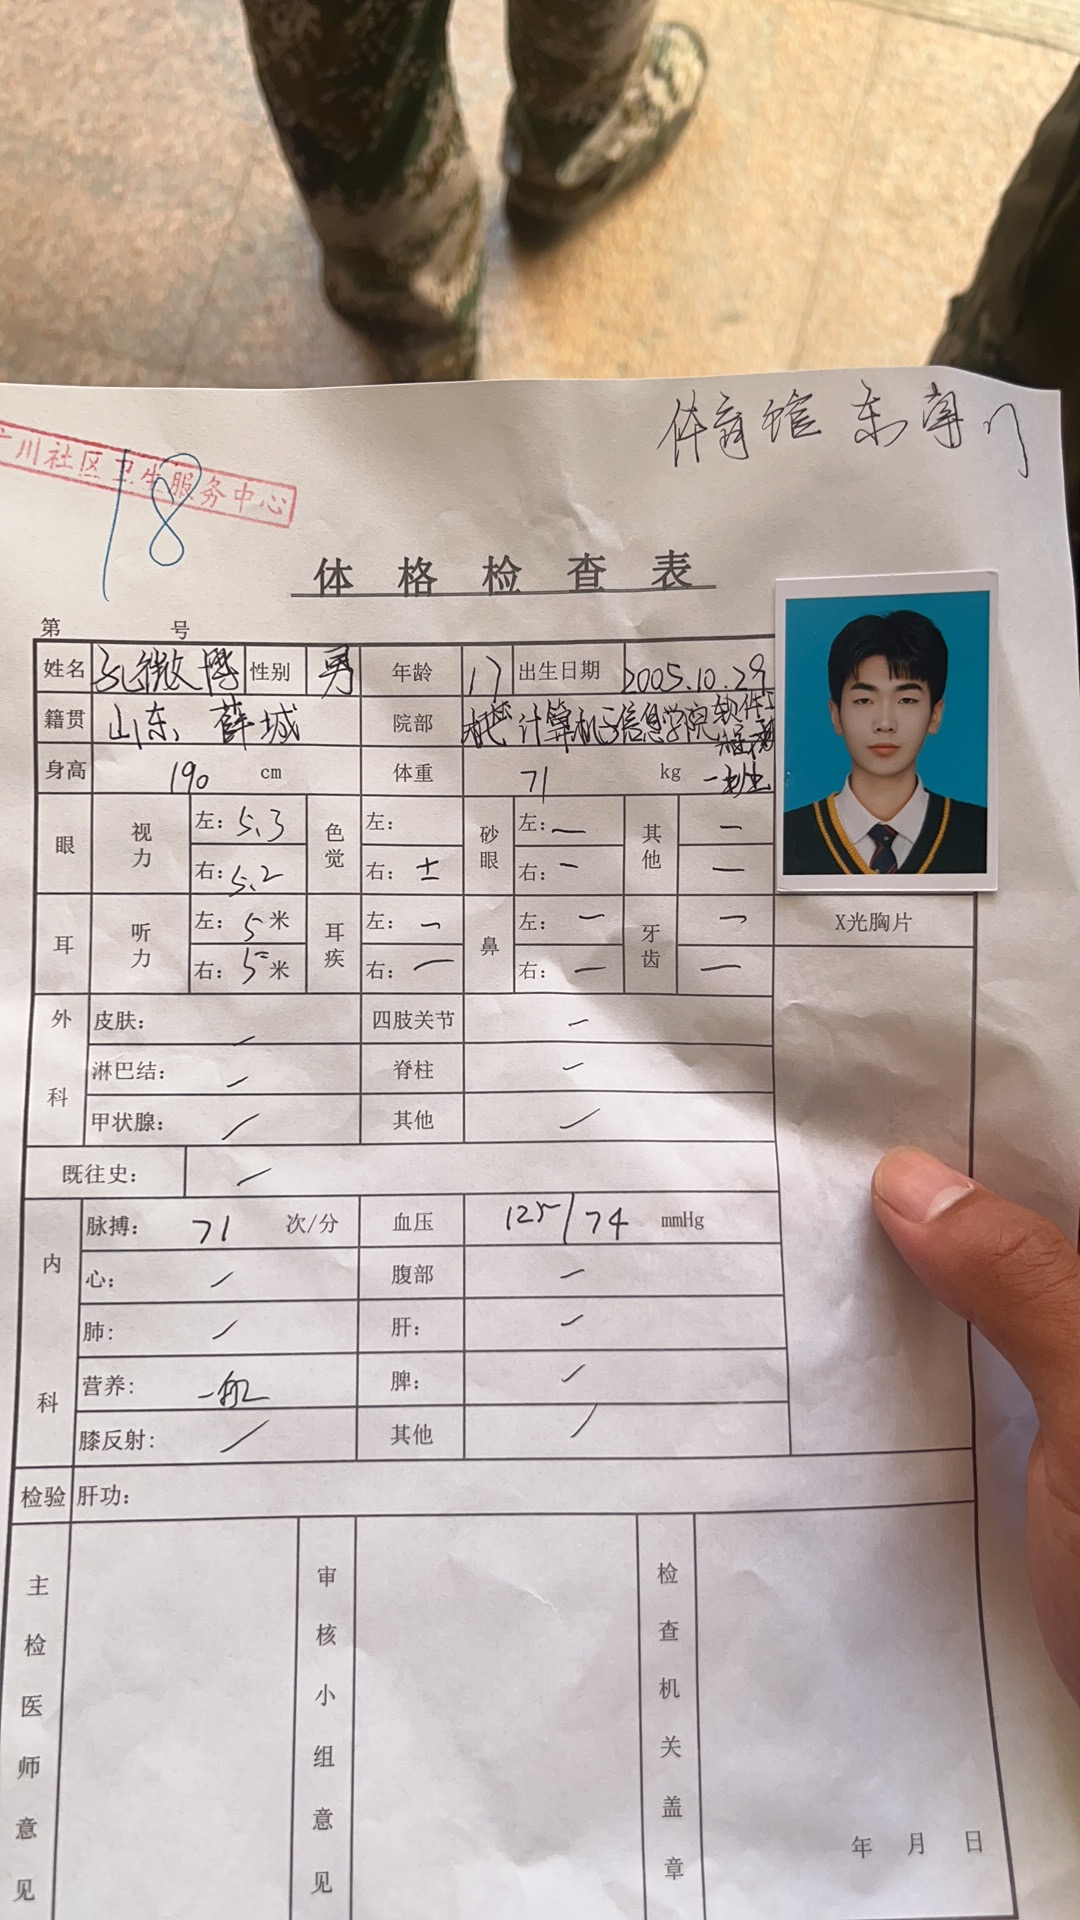 体育馆 东南门
川社区卫生服务中心
18
体格检查表
第 号
姓名 孔微博 性别 男 年龄 17 出生日期 2005.10.29
籍贯 山东 薛城 院部 计算机与信息学院 软件工
一班
身高 190 cm 体重 71 kg
眼 视力 左: 5.3 色觉 左: 砂眼 左: — 其他 —
右: 5.2 右: ± 右: — —
耳 听力 左: 5米 耳疾 左: — 鼻 左: — 牙齿 — X光胸片
右: 5米 右: — 右: — —
外科 皮肤: / 四肢关节 —
淋巴结: / 脊柱 —
甲状腺: / 其他 /
既往史: /
内科 脉搏: 71 次/分 血压 125/74 mmHg
心: / 腹部 —
肺: / 肝: —
营养: 一般 脾: /
膝反射: / 其他 /
检验 肝功:
主检医师意见 审核小组意见 检查机关盖章
年 月 日